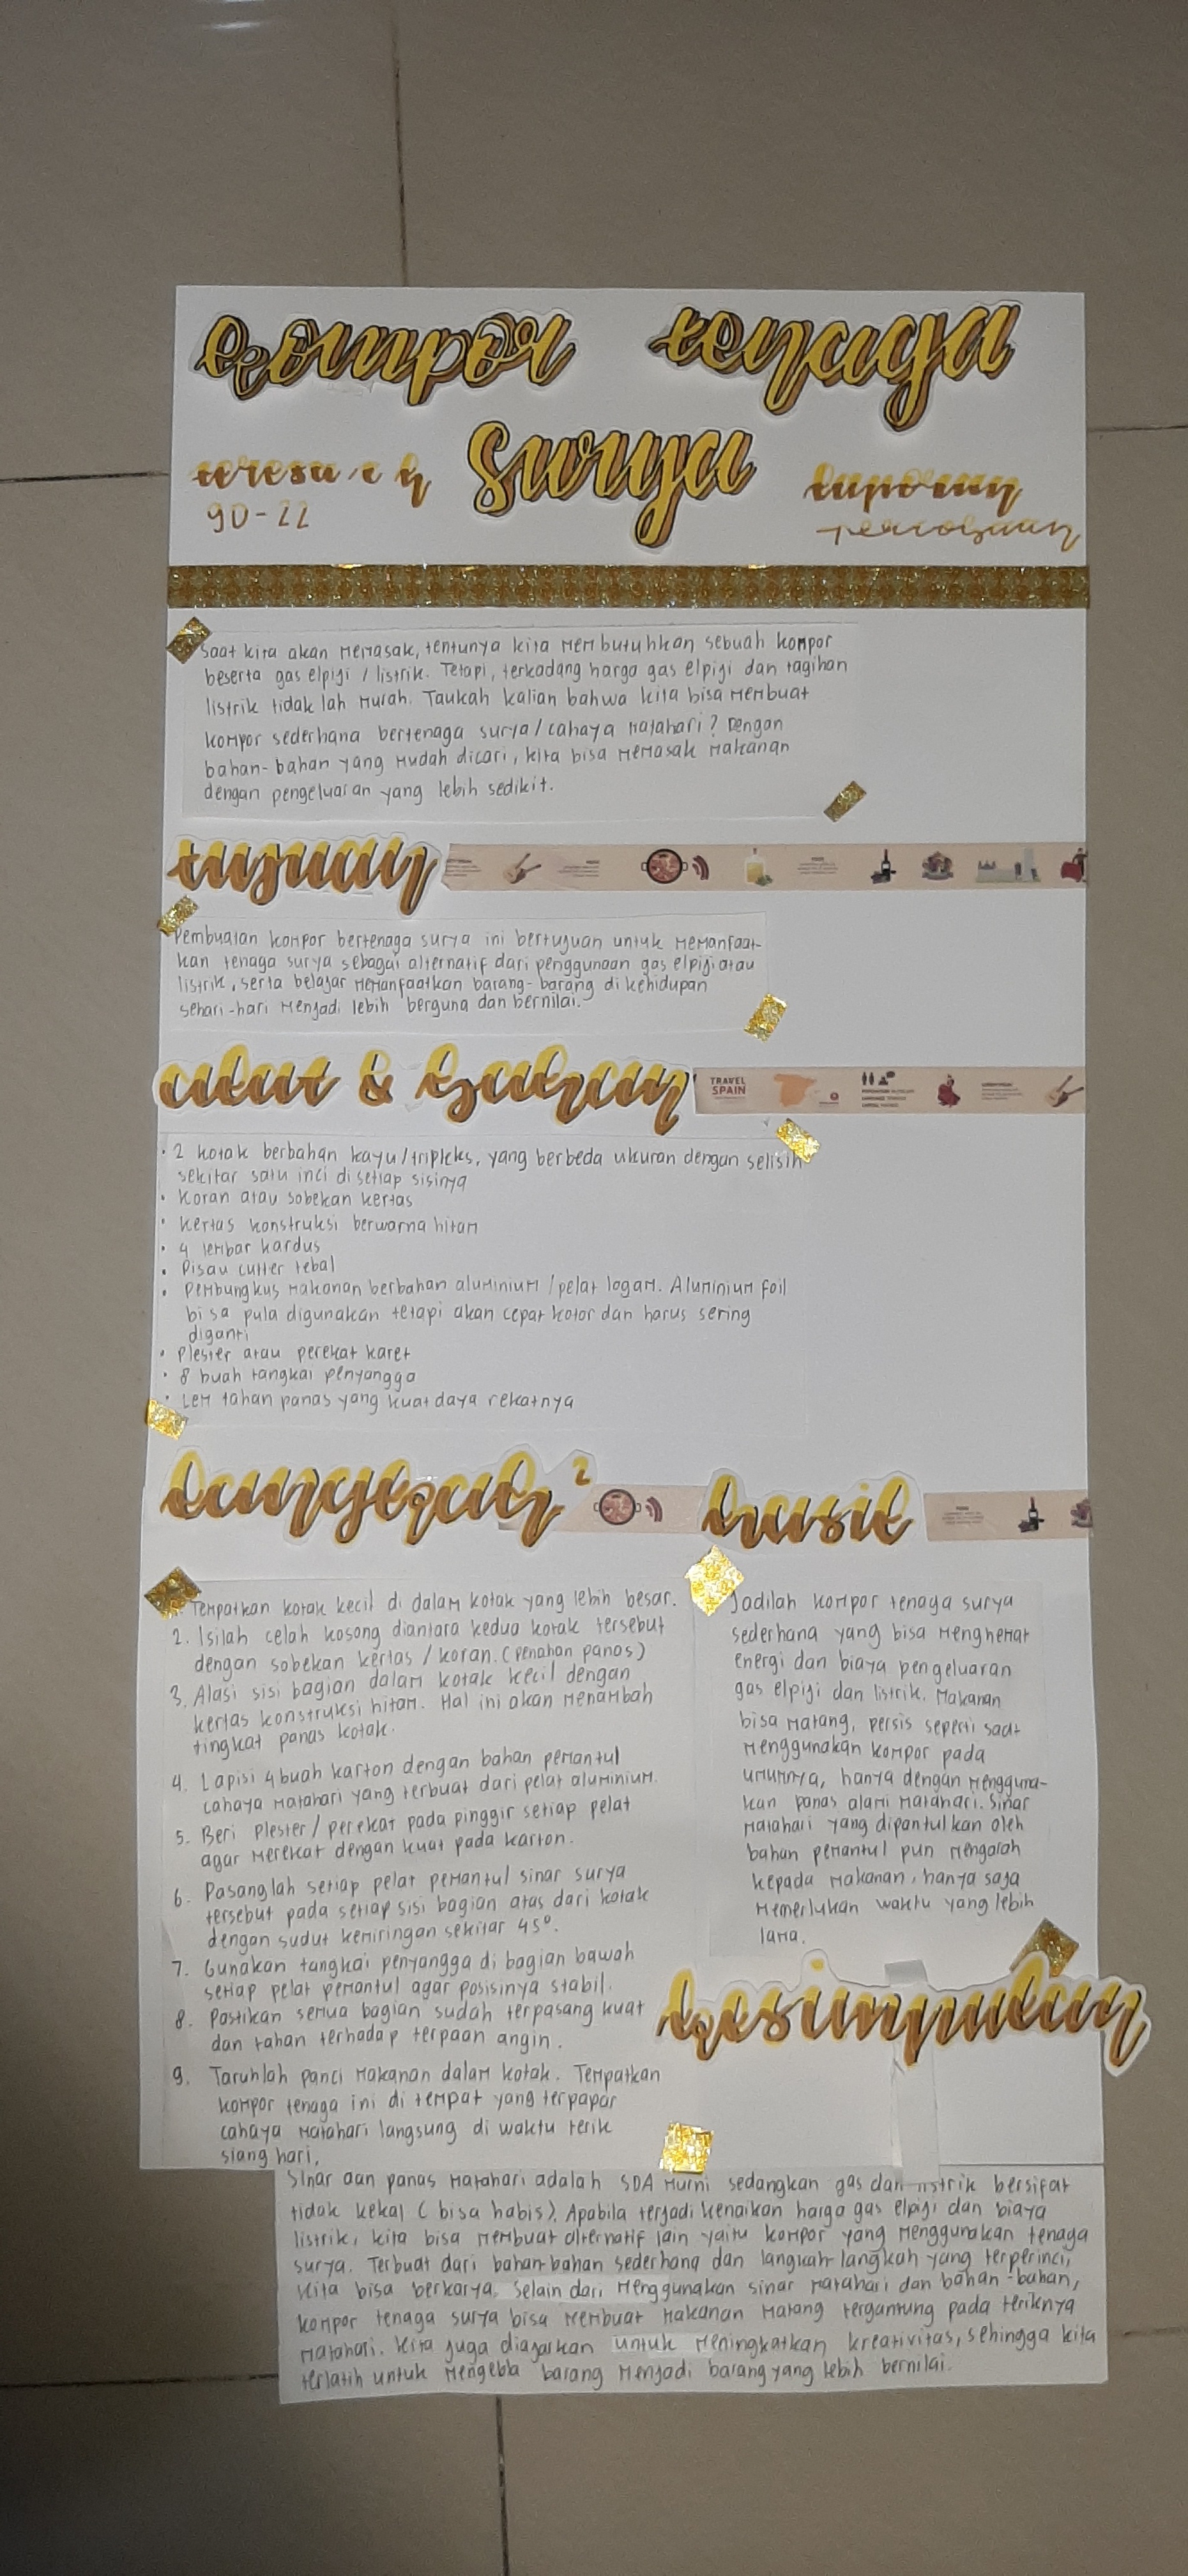 kompor tenaga
surya
teresa c h
9D-22
laporan
percobaan
Saat kita akan memasak, tentunya kita membutuhkan sebuah kompor
beserta gas elpiji / listrik. Tetapi, terkadang harga gas elpiji dan tagihan
listrik tidak lah murah. Taukah kalian bahwa kita bisa membuat
kompor sederhana bertenaga surya/cahaya matahari? Dengan
bahan-bahan yang mudah dicari, kita bisa memasak makanan
dengan pengeluaran yang lebih sedikit.
tujuan
Pembuatan kompor bertenaga surya ini bertujuan untuk memanfaat-
kan tenaga surya sebagai alternatif dari penggunaan gas elpiji atau
listrik, serta belajar memanfaatkan barang-barang di kehidupan
sehari-hari menjadi lebih berguna dan bernilai.
alat & bahan
TRAVEL
SPAIN
• 2 kotak berbahan kayu/tripleks, yang berbeda ukuran dengan selisih
sekitar satu inci di setiap sisinya
• Koran atau sobekan kertas
• Kertas konstruksi berwarna hitam
• 4 lembar kardus
• Pisau cutter tebal
• Pembungkus makanan berbahan aluminium / pelat logam. Aluminium foil
bisa pula digunakan tetapi akan cepat kotor dan harus sering
diganti
• Plester atau perekat karet
• 8 buah tangkai penyangga
• Lem tahan panas yang kuat daya rekatnya
langkah²
Tempatkan kotak kecil di dalam kotak yang lebih besar.
2. Isilah celah kosong diantara kedua kotak tersebut
dengan sobekan kertas / koran. (penahan panas)
3. Alasi sisi bagian dalam kotak kecil dengan
kertas konstruksi hitam. Hal ini akan menambah
tingkat panas kotak.
4. Lapisi 4 buah karton dengan bahan pemantul
cahaya matahari yang terbuat dari pelat aluminium.
5. Beri plester / perekat pada pinggir setiap pelat
agar merekat dengan kuat pada karton.
6. Pasanglah setiap pelat pemantul sinar surya
tersebut pada setiap sisi bagian atas dari kotak
dengan sudut kemiringan sekitar 45°.
7. Gunakan tangkai penyangga di bagian bawah
setiap pelat pemantul agar posisinya stabil.
8. Pastikan semua bagian sudah terpasang kuat
dan tahan terhadap terpaan angin.
9. Taruhlah panci makanan dalam kotak. Tempatkan
kompor tenaga ini di tempat yang terpapar
cahaya matahari langsung di waktu terik
siang hari.
hasil
Jadilah kompor tenaga surya
sederhana yang bisa menghemat
energi dan biaya pengeluaran
gas elpiji dan listrik. Makanan
bisa matang, persis seperti saat
menggunakan kompor pada
umumnya, hanya dengan mengguna-
kan panas alami matahari. Sinar
matahari yang dipantulkan oleh
bahan pemantul pun mengarah
kepada makanan, hanya saja
memerlukan waktu yang lebih
lama.
kesimpulan
Sinar dan panas matahari adalah SDA murni sedangkan gas dan listrik bersifat
tidak kekal (bisa habis). Apabila terjadi kenaikan harga gas elpiji dan biaya
listrik, kita bisa membuat alternatif lain yaitu kompor yang menggunakan tenaga
surya. Terbuat dari bahan-bahan sederhana dan langkah-langkah yang terperinci,
kita bisa berkarya. Selain dari menggunakan sinar matahari dan bahan-bahan,
kompor tenaga surya bisa membuat makanan matang tergantung pada teriknya
matahari. Kita juga diajarkan untuk meningkatkan kreativitas, sehingga kita
terlatih untuk barang menjadi barang yang lebih bernilai.